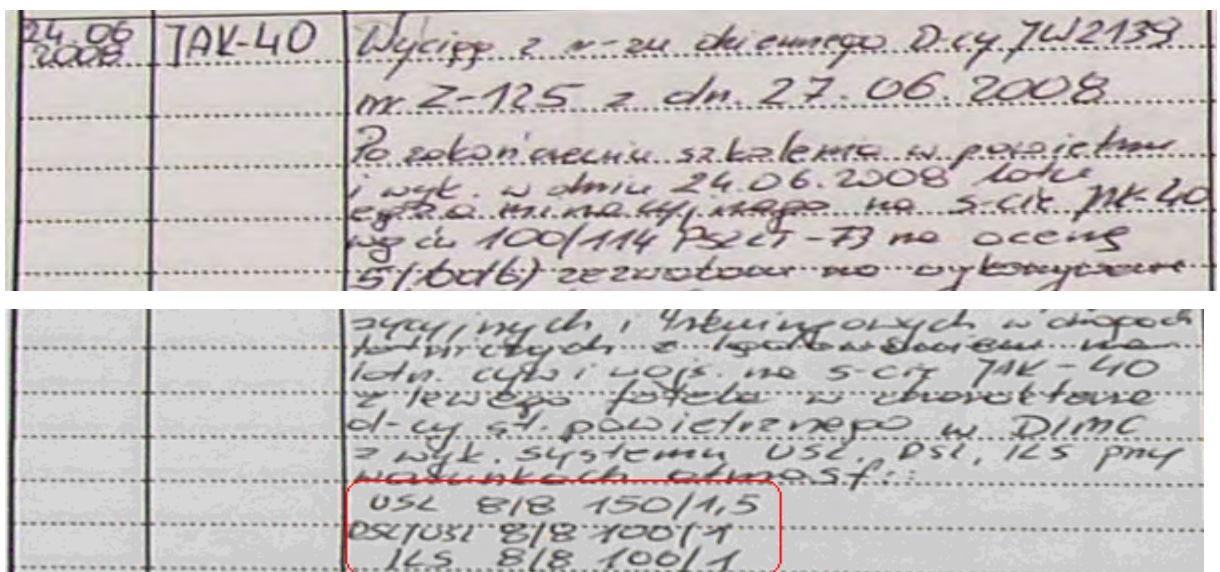 24.06 JAK-40 Wyciąg z r-zu dziennego D-cy JW2139
2008
nr Z-125 z dn. 27.06.2008
Po zakończeniu szkolenia w powietrzu
i wyk. w dniu 24.06.2008 lotu
egzaminacyjnego na s-cie JAK-40
wg ćw 100/114 PSzLT-73 na ocenę
5 (bdb) zezwalam na wykonywanie
i treningowych w
lotniczych z lądowaniem na
lotn. cyw i wojs. na s-cie JAK-40
z lewego fotela w charakterze
d-cy st. powietrznego w DIMC
z wyk. systemu USL, DSL, ILS przy
warunkach atmosf.:
USL 8/8 150/1,5
DSL/USL 8/8 100/1
ILS 8/8 100/1